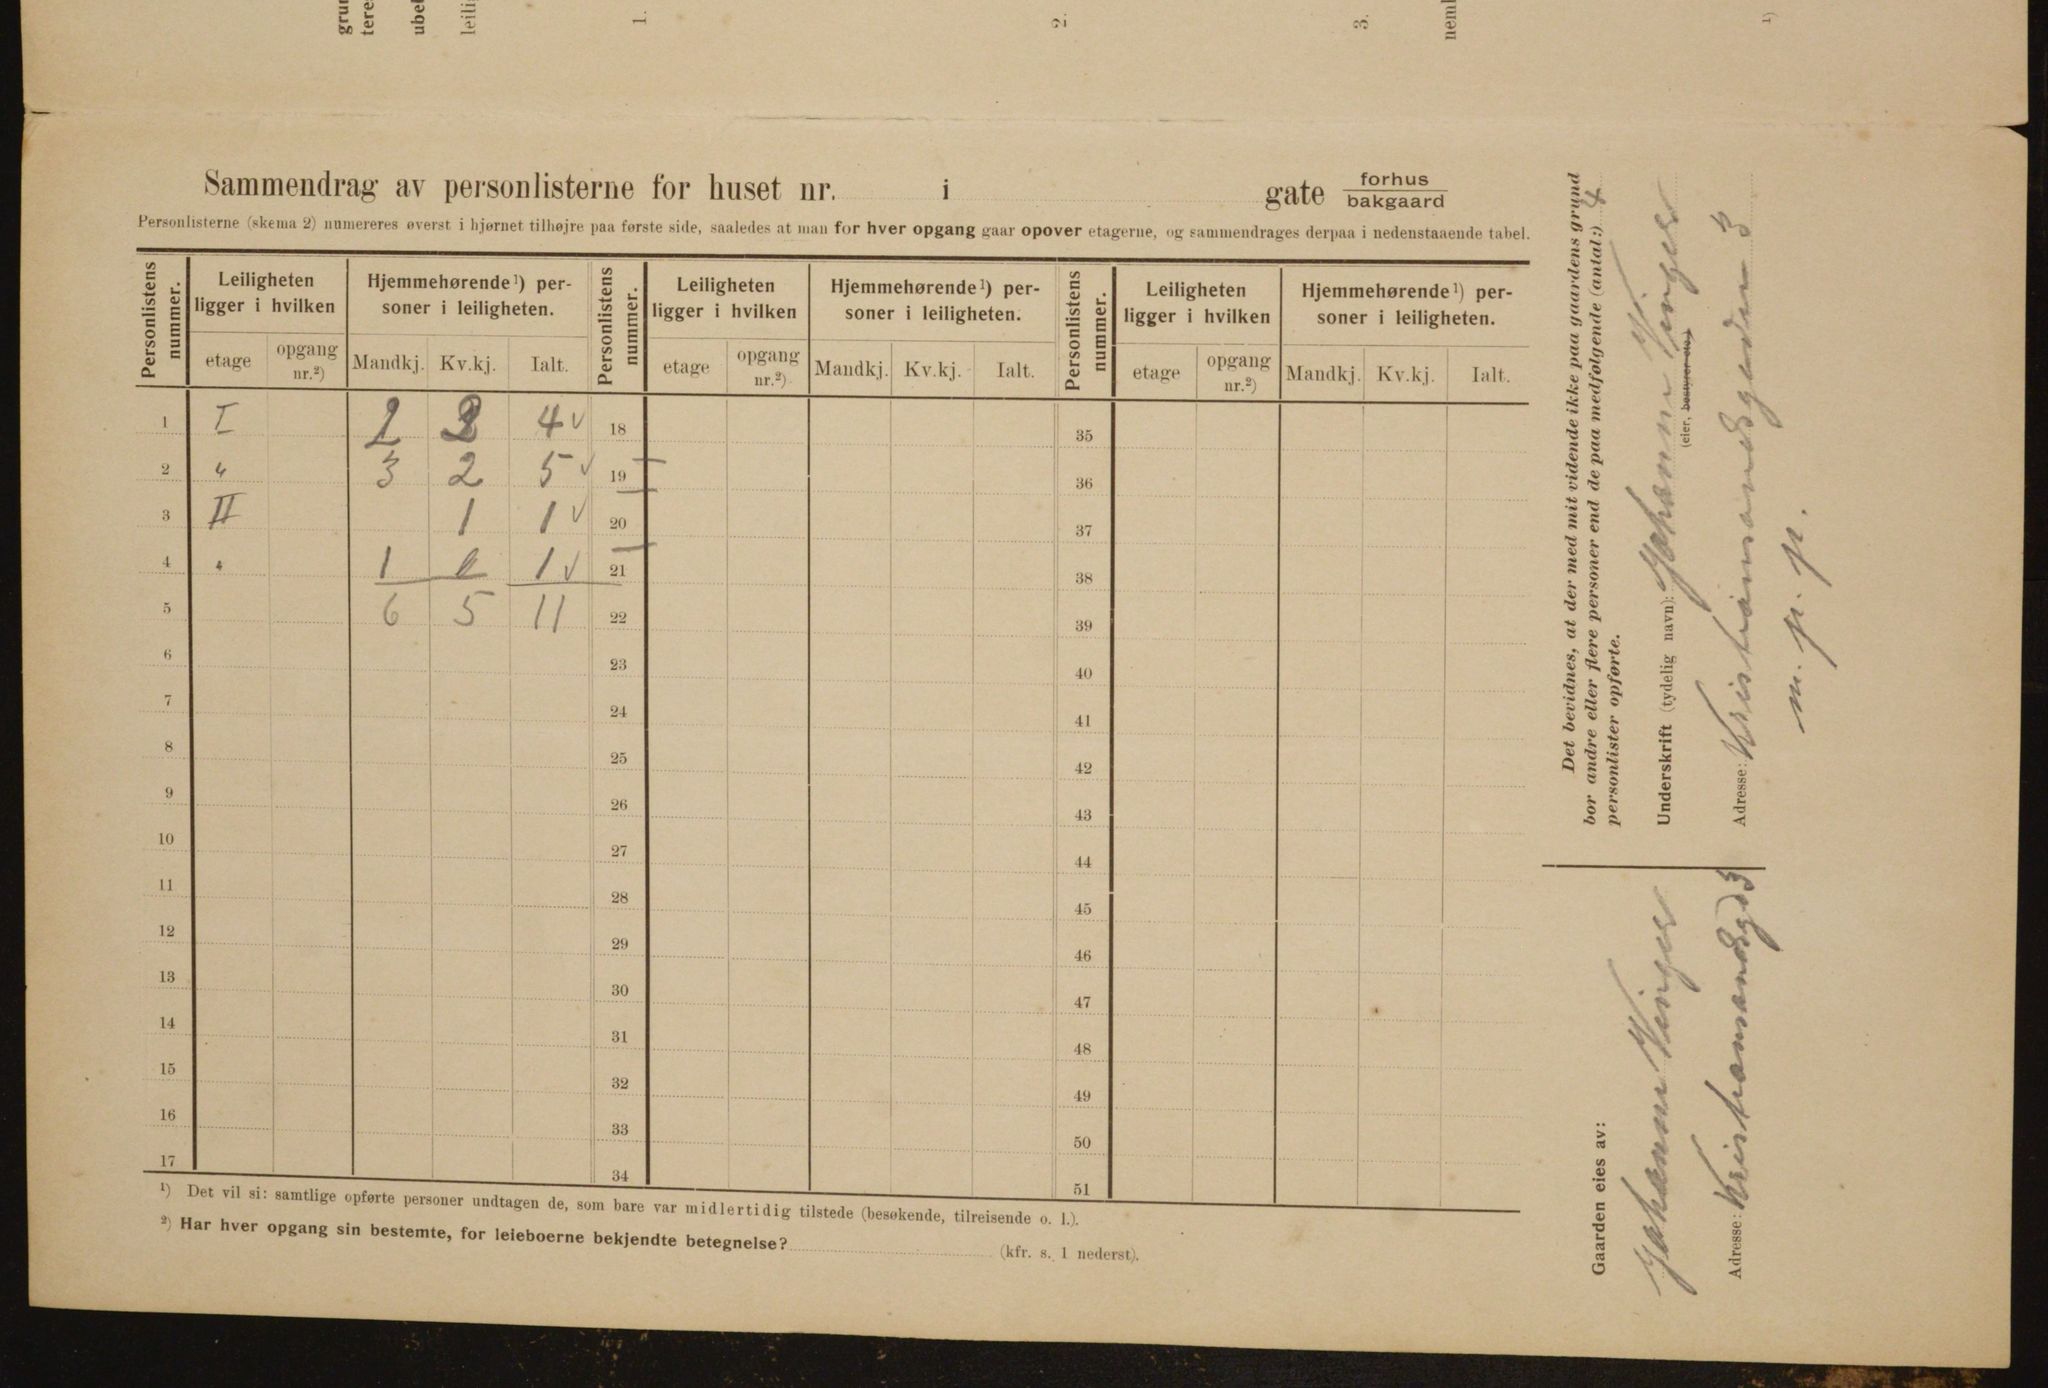 grun
teres
ubel
leilig
1.
2.
3.
nemb
1)
Sammendrag av personlisterne for huset nr. i gate forhus
bakgaard
Personlisterne (skema 2) numereres øverst i hjørnet tilhøjre paa første side, saaledes at man for hver opgang gaar opover etagerne, og sammendrages derpaa i nedenstaaende tabel.
Personlistens nummer. Leiligheten ligger i hvilken Hjemmehørende ¹) personer i leiligheten. Personlistens nummer. Leiligheten ligger i hvilken Hjemmehørende ¹) personer i leiligheten. Personlistens nummer. Leiligheten ligger i hvilken Hjemmehørende ¹) personer i leiligheten.
etage opgang nr.²) Mandkj. Kv.kj. Ialt. etage opgang nr.²) Mandkj. Kv.kj. Ialt. etage opgang nr.²) Mandkj. Kv.kj. Ialt.
1 I 2 2 4 √ 18 35
2 " 3 2 5 √ 19 36
3 II 1 1 √ 20 37
4 " 1 1 √ 21 38
5 6 5 11 22 39
6 23 40
7 24 41
8 25 42
9 26 43
10 27 44
11 28 45
12 29 46
13 30 47
14 31 48
15 32 49
16 33 50
17 34 51
¹) Det vil si: samtlige opførte personer undtagen de, som bare var midlertidig tilstede (besøkende, tilreisende o. l.).
²) Har hver opgang sin bestemte, for leieboerne bekjendte betegnelse? (kfr. s. 1 nederst).
Det bevidnes, at der med mit vidende ikke paa gaardens grund
bor andre eller flere personer end de paa medfølgende (antal:) 4
personlister opførte.
Underskrift (tydelig navn): Johanne Vinger
(eier, bestyrer etc.)
Adresse: Kristiansandsgaden 3
m. p. p.
Gaarden eies av:
Johanne Vinger
Adresse: Kristiansandsgd 3